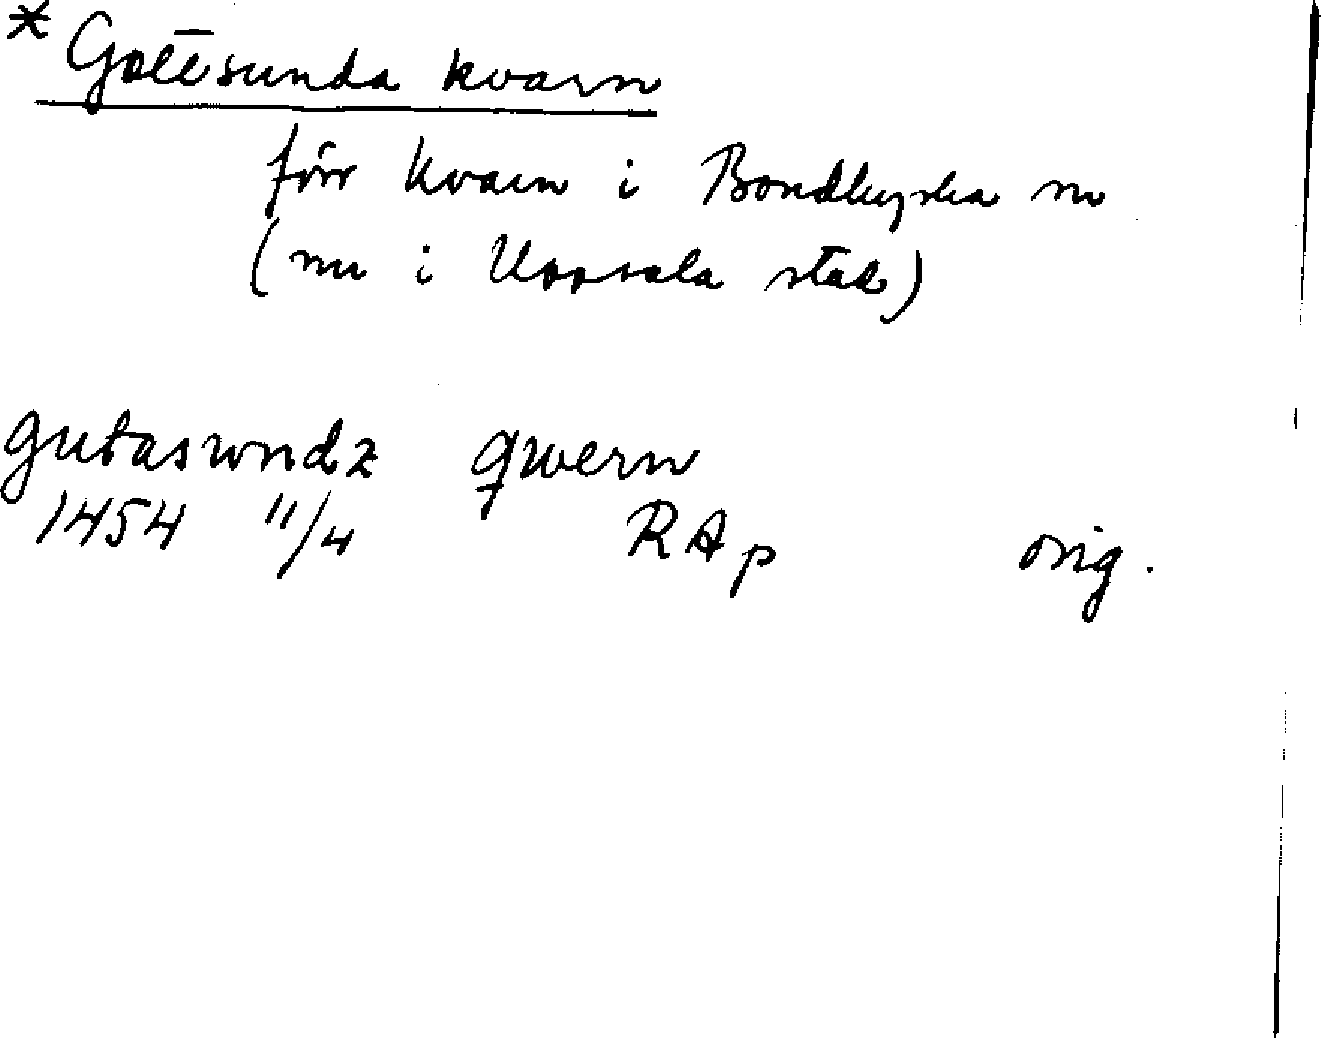 * Gottsunda kvarn
förr kvarn i Bondkyrka sn
(nu i Uppsala stad)
gutaswndz qwern
1454 11/4 RAp orig.